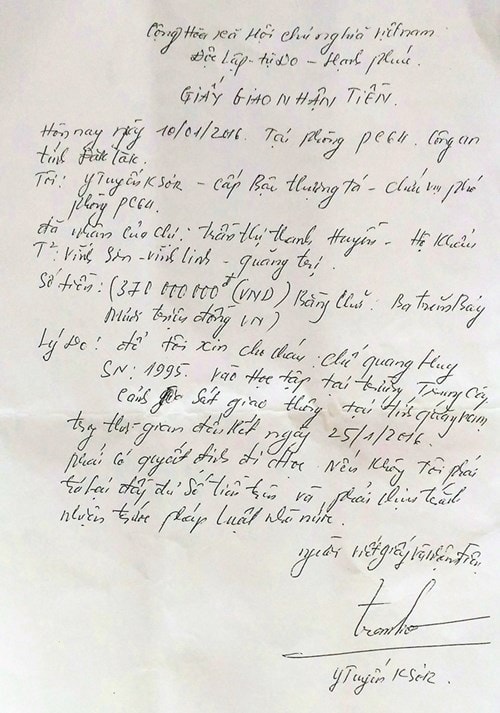 Cộng Hòa xã Hội chủ nghĩa Việt nam
Độc Lập - Tự Do - Hạnh phúc.
GIẤY GIAO NHẬN TIỀN.
Hôm nay ngày 10/01/2016. Tại phòng PC64. Công an
tỉnh Đăk Lăk.
Tôi: YTuyến KSOR - cấp Bậc thượng tá - chức vụ phó
phòng PC64.
đã nhận của chị: Trần thị thanh Huyền - Hộ Khẩu
T²: Vĩnh Sơn - Vĩnh Linh - quảng trị.
Số tiền: (370 000 000đ (VND) Bằng chữ: Ba trăm Bảy
Mươi triệu đồng VN)
Lý Do: để tôi xin cho cháu: chế quang Huy
SN: 1995. vào Học tập tại trường Trung Cấp
cảnh sát giao thông tại tỉnh quảng nam
thời gian đến hết ngày 25/1/2016.
phải có quyết định đi Học. Nếu Không Tôi phải
trả lại đầy đủ số tiền trên và phải chịu trách
nhiệm trước pháp Luật nhà nước.
người viết giấy và nhận tiền
YTuyến KSOR.